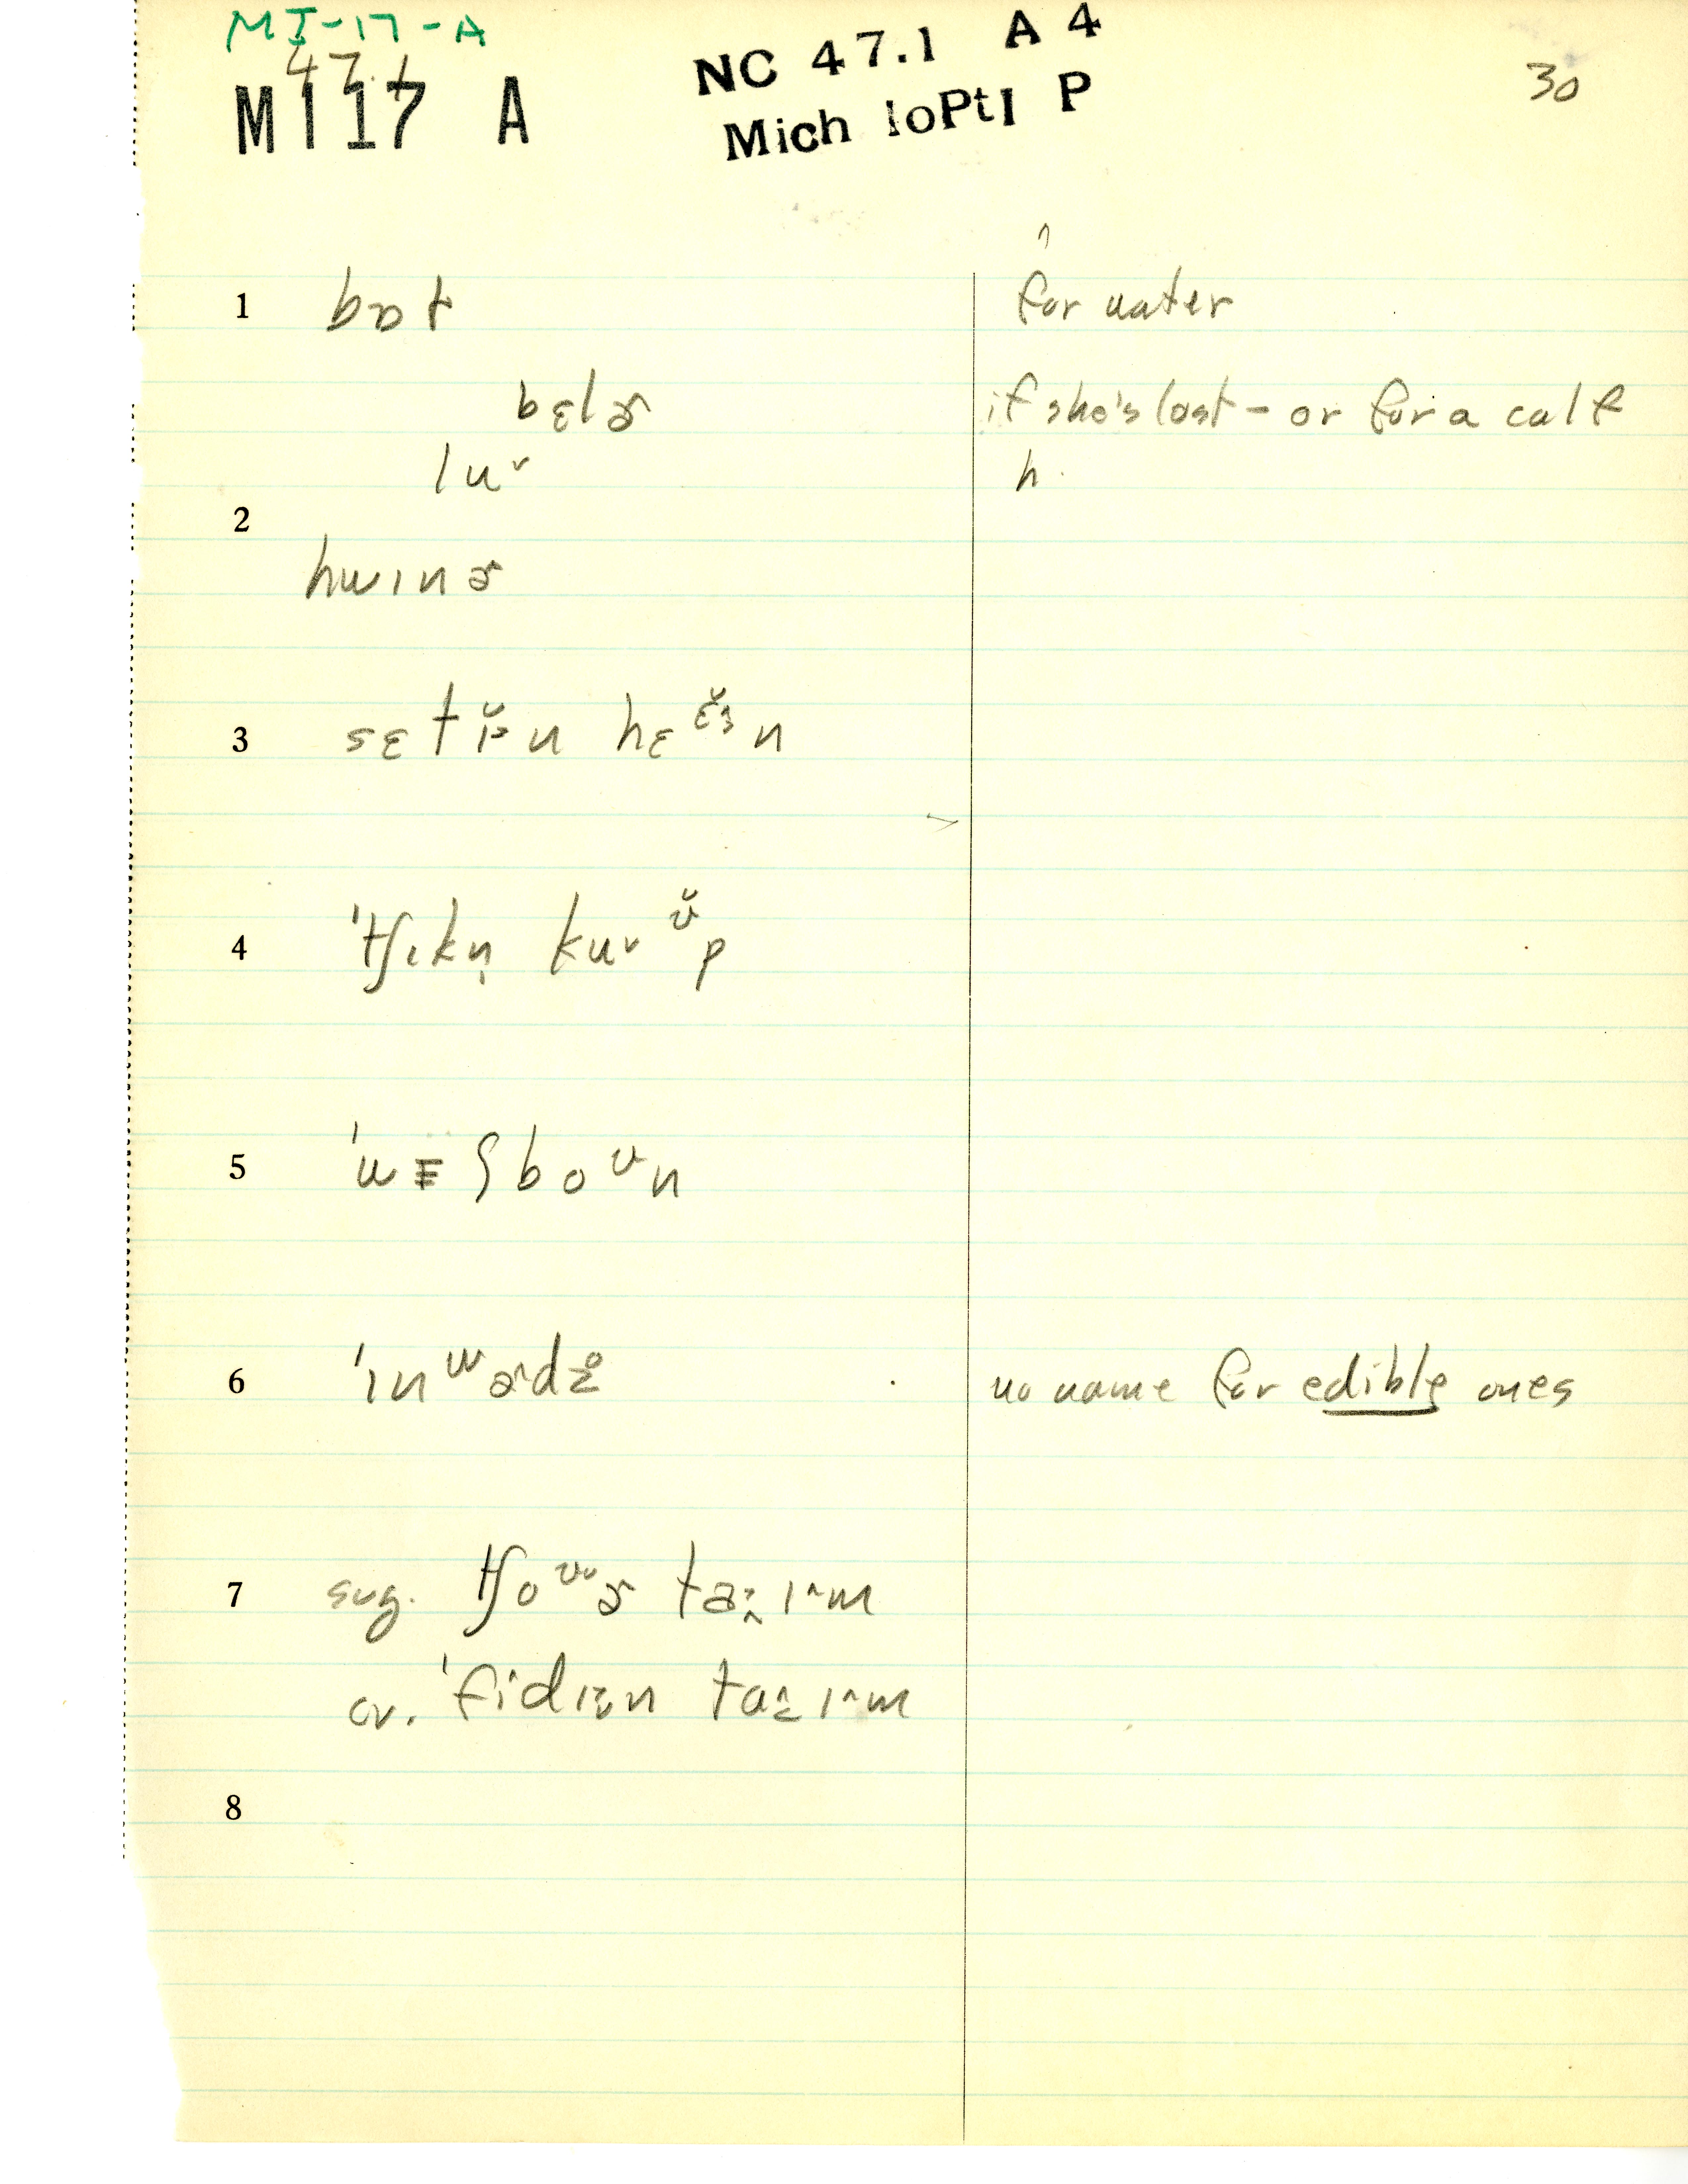 MI-17-A
47.1
M117 A
NC 47.1 A 4
Mich loPtI P
30
1 bɒt for water
bɛlɚ if she's lost - or for a calf
luᵛ h.
2
hwɪnɚ
3 sɛtɪ̆n hɛɛ̆n
4 'tʃɪkn̩ kuᵛʊ̆p
5 'wɪʃboᶷn
6 'ɪnʷɚdz̥ no name for edible ones
7 sug. tʃoᶷɚ taɪm
cv. 'fidɪn taɪm
8